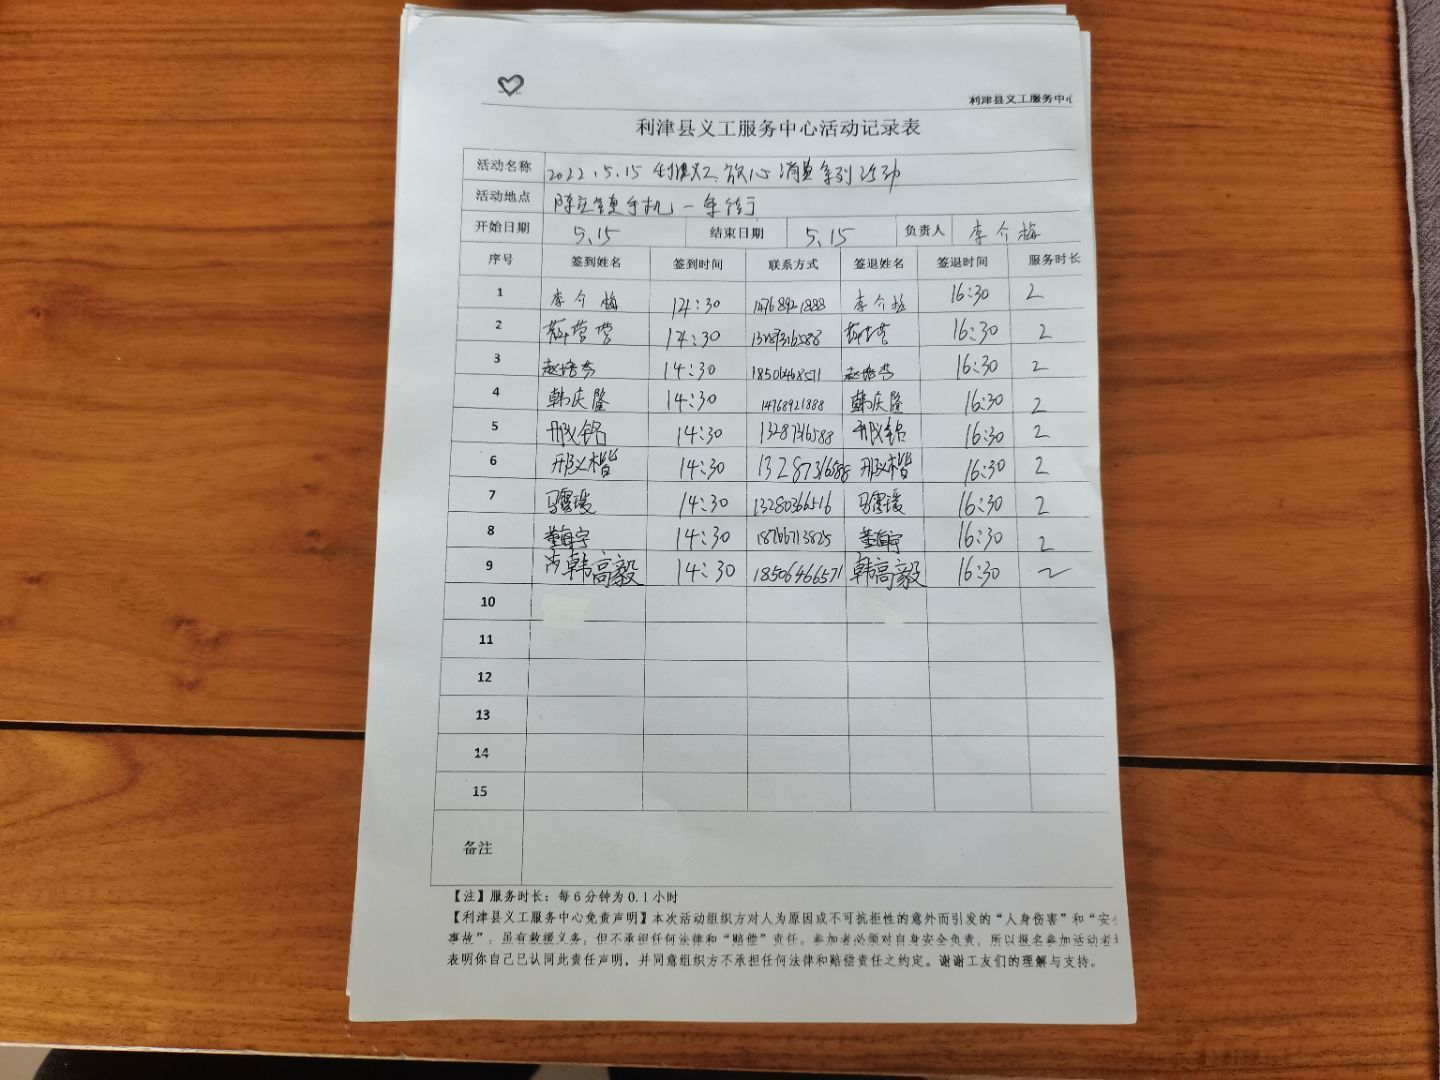 利津县义工服务中心
利津县义工服务中心活动记录表
活动名称 2022.5.15 利津义工 放心消费系列活动
活动地点 手机一条街
开始日期 5.15 结束日期 5.15 负责人 李介梅
序号 签到姓名 签到时间 联系方式 签退姓名 签退时间 服务时长
1 李介梅 14:30 14768921888 李介梅 16:30 2
2 14:30 13287316588 16:30 2
3 赵培芳 14:30 18506468511 赵培芳 16:30 2
4 韩庆隆 14:30 14768921888 韩庆隆 16:30 2
5 邢义铭 14:30 13287316588 邢义铭 16:30 2
6 邢义楷 14:30 13287316588 邢义楷 16:30 2
7 马雪瑗 14:30 13280366516 马雪瑗 16:30 2
8 董海宇 14:30 18766713825 董海宇 16:30 2
9 韩高毅 14:30 18506466571 韩高毅 16:30 2
10
11
12
13
14
15
备注
【注】服务时长：每6分钟为0.1小时
【利津县义工服务中心免责声明】本次活动组织方对人为原因或不可抗拒性的意外而引发的“人身伤害”和“安全
事故”，虽有救援义务，但不承担任何法律和“赔偿”责任。参加者必须对自身安全负责，所以报名参加活动者
表明你自己已认同此责任声明，并同意组织方不承担任何法律和赔偿责任之约定。谢谢工友们的理解与支持。